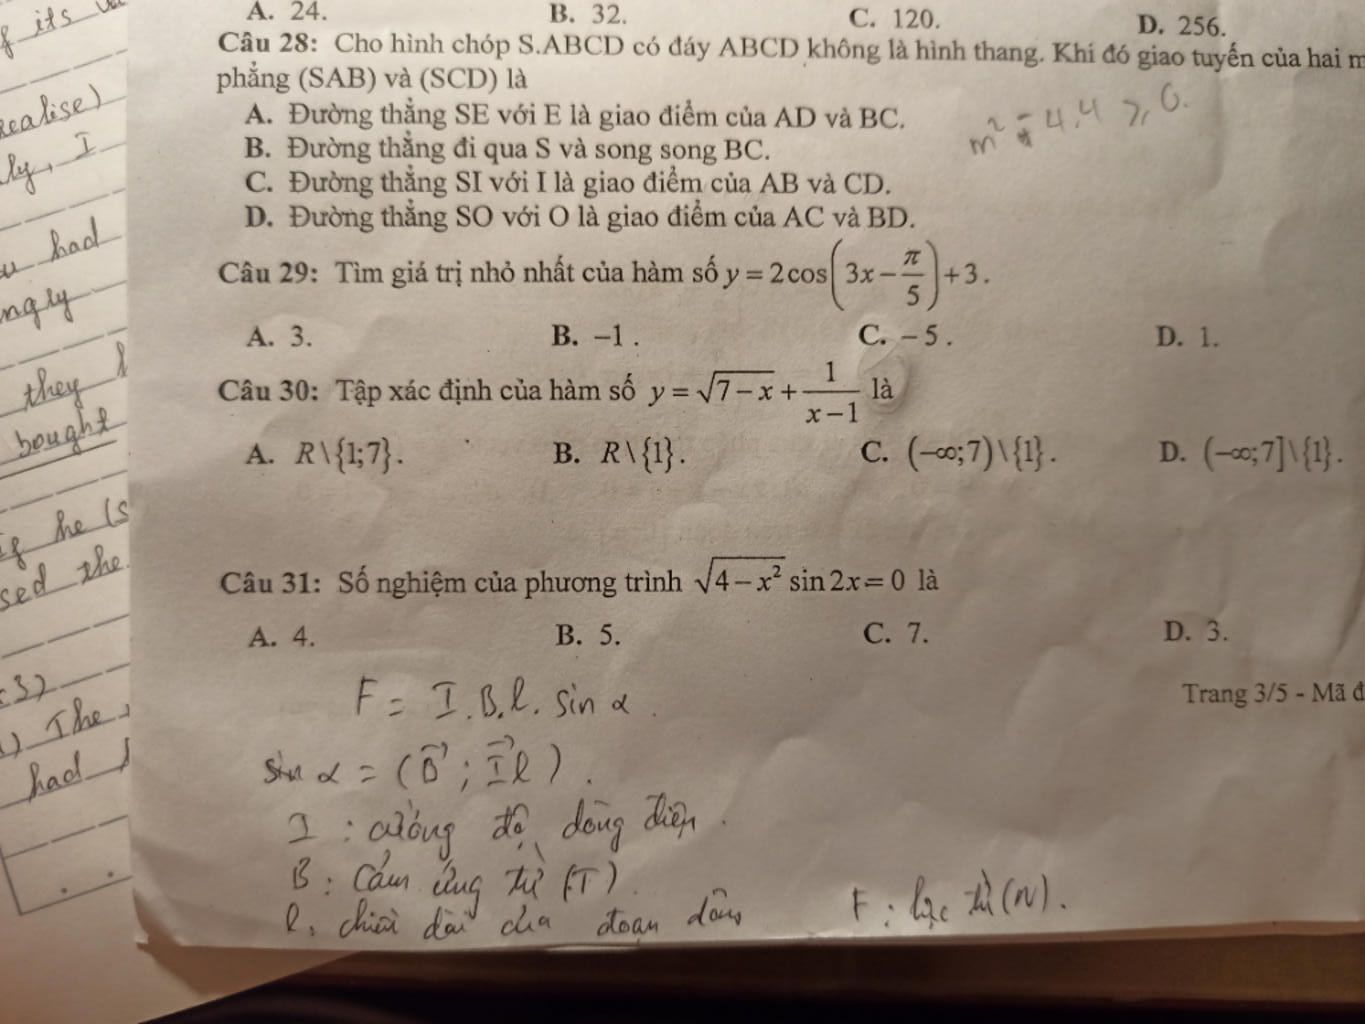 f its
A. 24. B. 32. C. 120. D. 256.
Câu 28: Cho hình chóp S.ABCD có đáy ABCD không là hình thang. Khi đó giao tuyến của hai m
phẳng (SAB) và (SCD) là
A. Đường thẳng SE với E là giao điểm của AD và BC.
m² - 4.4 ≥ 0.
B. Đường thẳng đi qua S và song song BC.
C. Đường thẳng SI với I là giao điểm của AB và CD.
D. Đường thẳng SO với O là giao điểm của AC và BD.
Câu 29: Tìm giá trị nhỏ nhất của hàm số y = 2cos(3x − π/5) + 3.
A. 3. B. −1. C. −5. D. 1.
Câu 30: Tập xác định của hàm số y = √(7 − x) + 1/(x − 1) là
A. R\{1;7}. B. R\{1}. C. (−∞;7)\{1}. D. (−∞;7]\{1}.
Câu 31: Số nghiệm của phương trình √(4 − x²) sin 2x = 0 là
A. 4. B. 5. C. 7. D. 3.
Trang 3/5 - Mã đ
F = I.B.l. sin α.
sin α = (B⃗ ; I⃗l).
I : cường độ dòng điện.
B : Cảm ứng từ (T).
l : chiều dài của đoạn dòng
F : lực từ (N).
realise)
ly, I
u had
ngly
they
bought
if he (s
sed the
:3)
) The
had